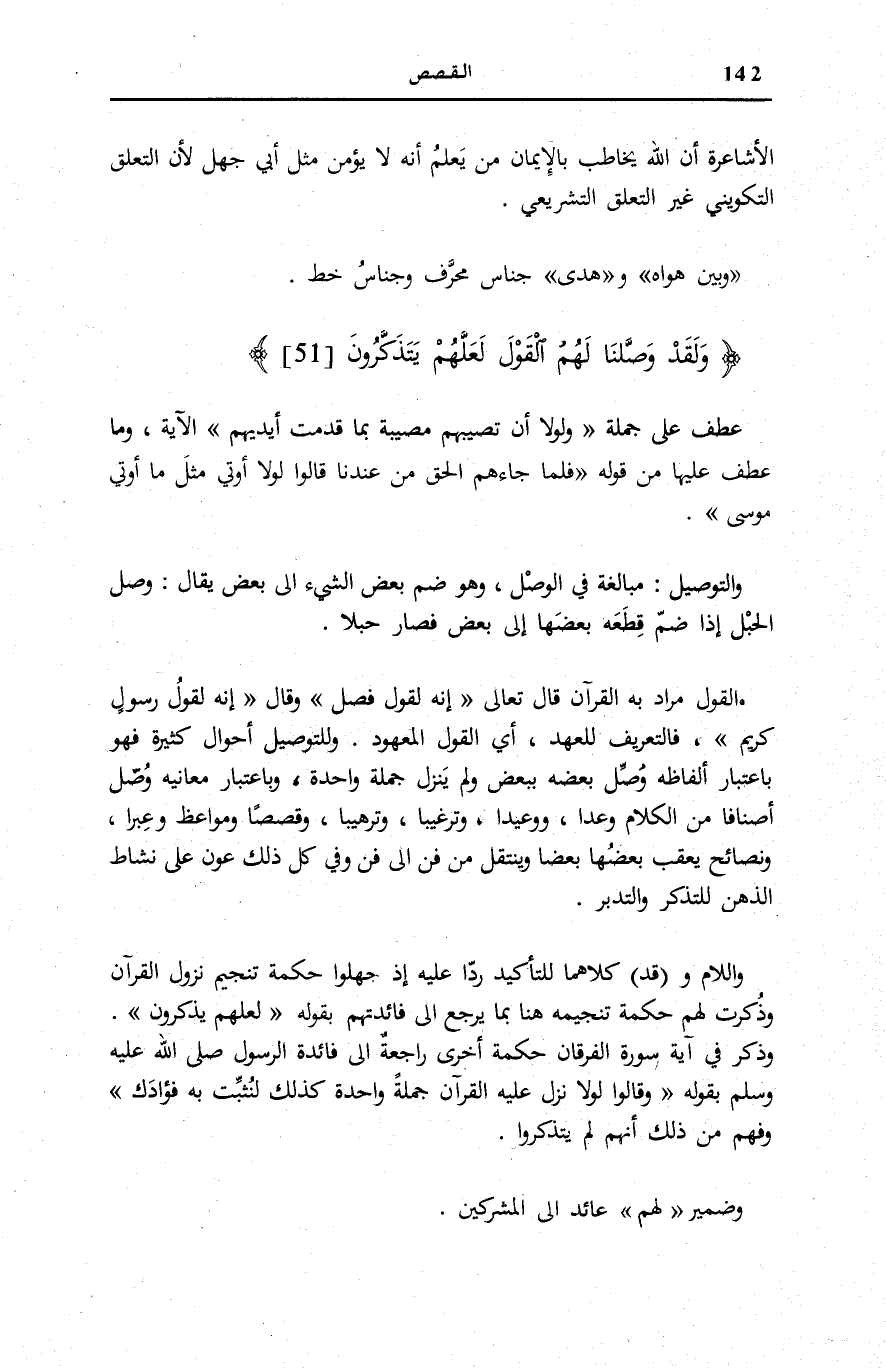 142
القصص
الأشاعرة أن الله يخاطب بالإيمان من يَعلمُ أنه لا يؤمن مثل أبي جهل لأن التعلق
التكويني غير التعلق التشريعي .
«وبين هواه» و«هدى» جناس محرَّف وجناسُ خط .
﴿ وَلَقَدْ وَصَّلنَا لَهُمُ ٱلْقَوْلَ لَعَلَّهُمْ يَتَذَكَّرُونَ [51] ﴾
عطف على جملة « ولولا أن تصيبهم مصيبة بما قدمت أيديهم » الآية ، وما
عطف عليها من قوله «فلما جاءهم الحق من عندنا قالوا لولا أوتي مثلَ ما أوتي
موسى » .
والتوصيل : مبالغة في الوصْل ، وهو ضم بعض الشيء الى بعض يقال : وصل
الحبْل إذا ضمّ قِطَعَه بعضَها إلى بعض فصار حبلا .
والقول مراد به القرآن قال تعالى « إنه لقول فصل » وقال « إنه لقولُ رسولٍ
كريم » ، فالتعريف للعهد ، أي القول المعهود . وللتوصيل أحوال كثيرة فهو
باعتبار ألفاظه وُصِّل بعضه ببعض ولم يَنزل جملة واحدة ، وباعتبار معانيه وُصّل
أصنافا من الكلام وعدا ، ووعيدا ، وترغيبا ، وترهيبا ، وقصصًا ومواعظ وعِبرا ،
ونصائح يعقب بعضُها بعضا وينتقل من فن الى فن وفي كل ذلك عون على نشاط
الذهن للتذكر والتدبر .
واللام و (قد) كلاهما للتأكيد ردّا عليه إذ جهلوا حكمة تنجيم نزول القرآن
وذُكرت لهم حكمة تنجيمه هنا بما يرجع الى فائدتهم بقوله « لعلهم يذكرون » .
وذكر في آية سورة الفرقان حكمة أخرى راجعةٌ الى فائدة الرسول صلى الله عليه
وسلم بقوله « وقالوا لولا نزل عليه القرآن جملةً واحدة كذلك لنُثبِّت به فؤادَك »
وفهم من ذلك أنهم لم يتذكروا .
وضمير « لهم » عائد الى المشركين .